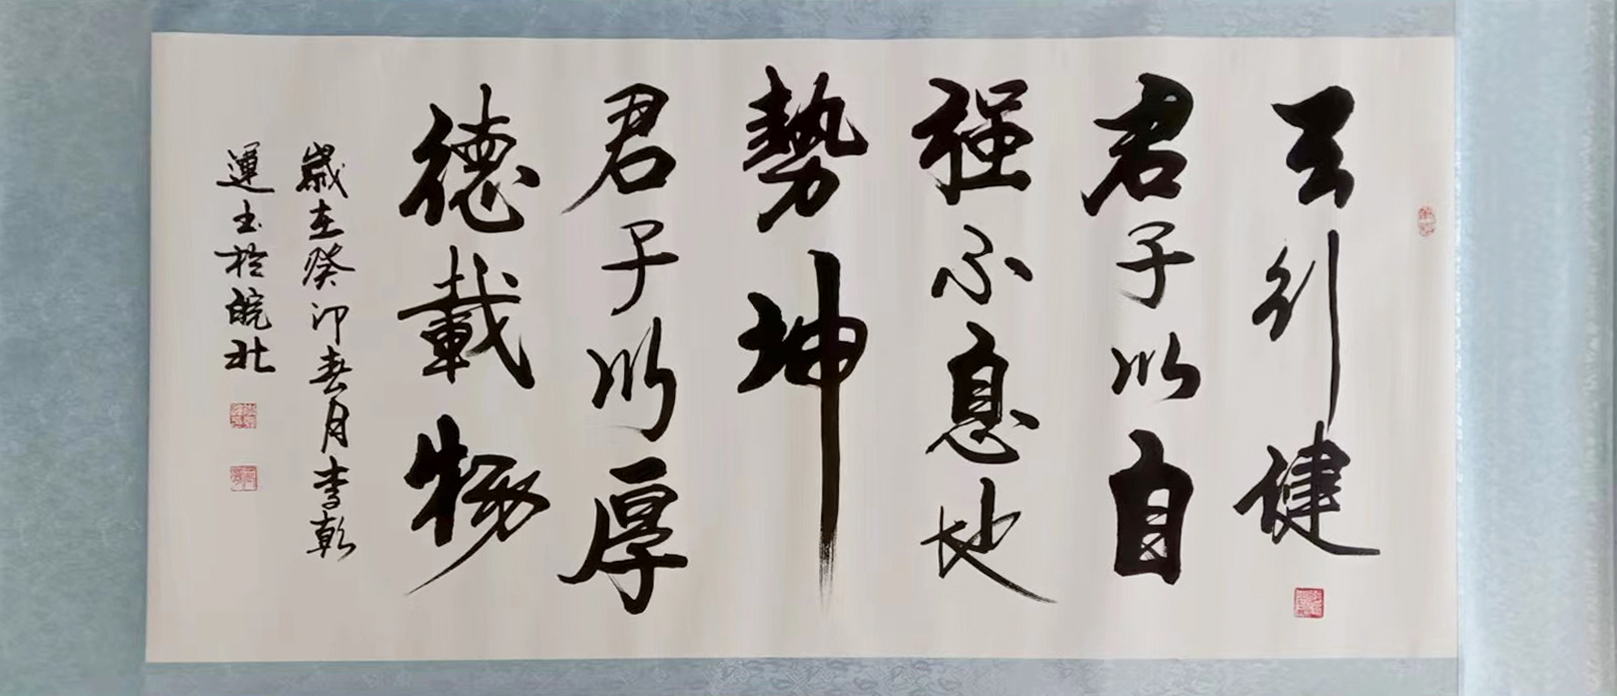 天行健
君子以自
强不息地
勢坤
君子以厚
德載物
歲在癸卯春月李乾
運書於皖北